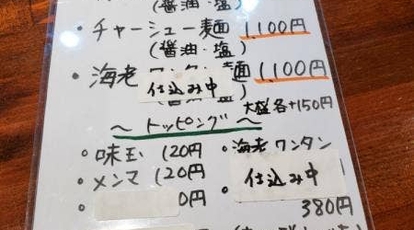 (醤油・塩)
・チャーシュー麺 1,100円
(醤油・塩)
・海老ワンタン麺 1,100円
仕込み中
大盛各+150円
〜トッピング〜
・味玉 120円 ・海老ワンタン
・メンマ 120円 ・仕込み中
・ 0円 380円